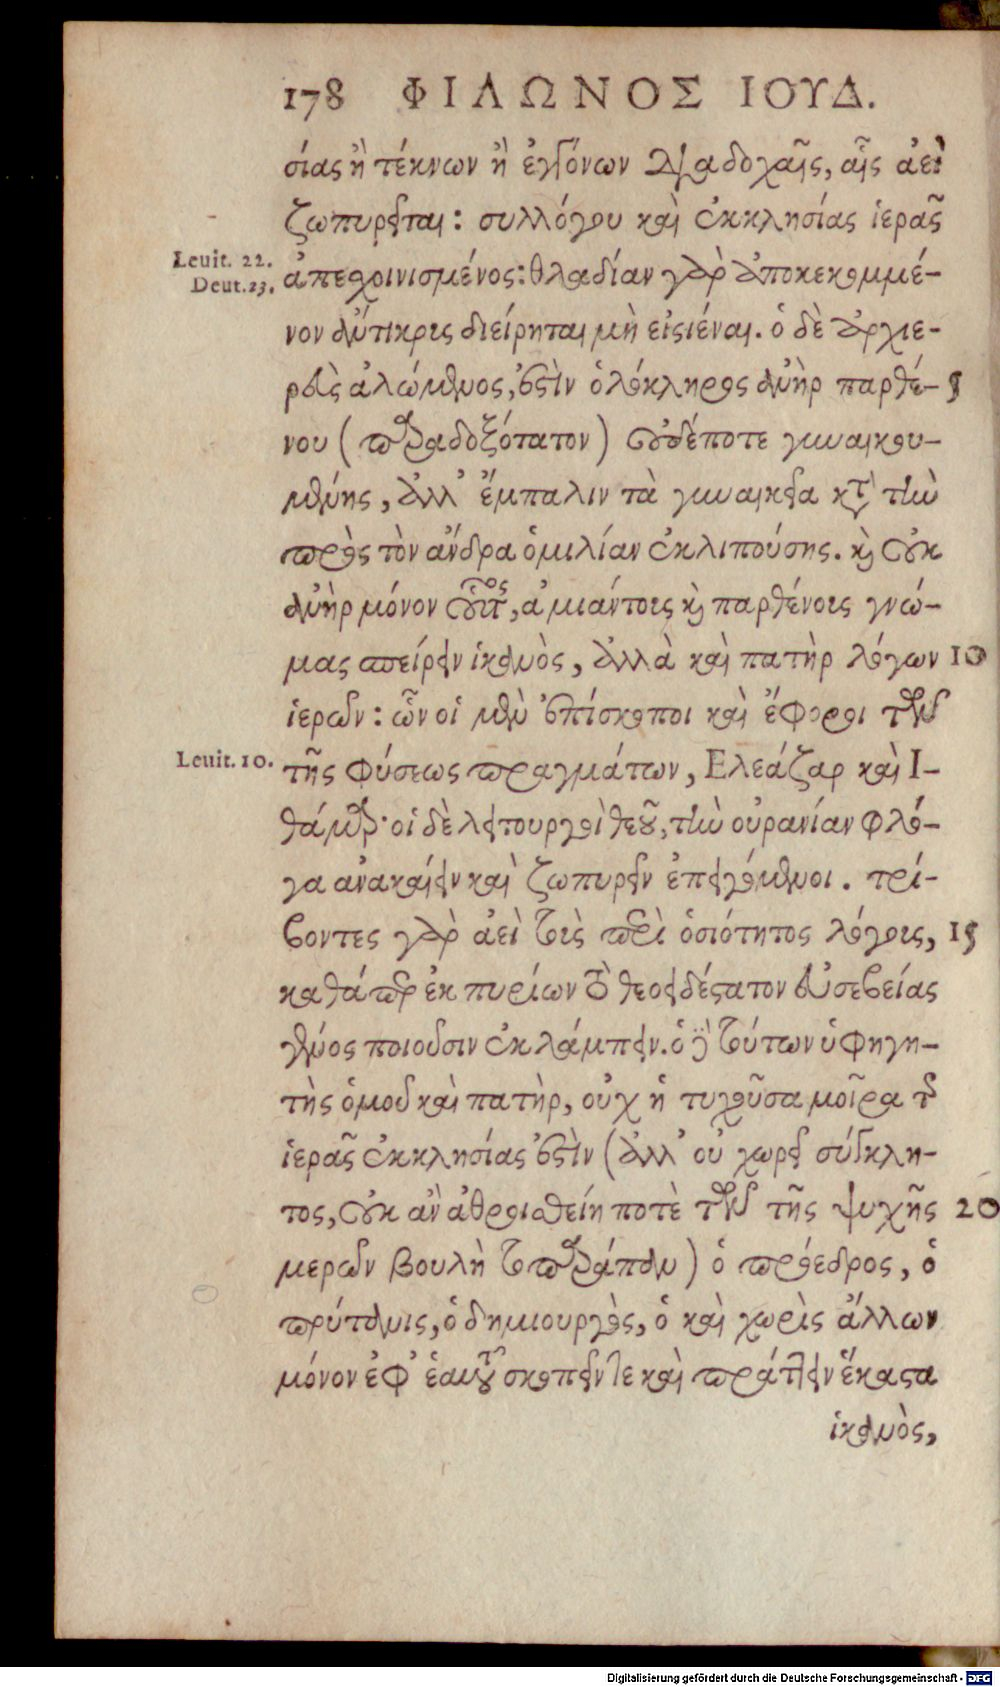 178 ΦΙΛΩΝΟΣ ΙΟΥΔ.
σίας ἢ τέκνων ἢ ἐγγόνων διαδοχαῖς, αἷς ἀεὶ
ζωπυρεῖται: συλλόγου καὶ ἐκκλησίας ἱερᾶς
Leuit. 22.
Deut. 23.
ἀπεσχοινισμένος: θλαδίαν γὰρ ἀποκεκομμέ-
νον ἄντικρις διείρηται μὴ εἰσιέναι. ὁ δὲ ἀρχιε-
ρεὺς ἁλώμενος, ἐστὶν ὁλόκληρος ἀνὴρ παρθέ- 5
νου (παραδοξότατον) οὐδέποτε γυναικου-
μένης, ἀλλ' ἔμπαλιν τὰ γυναικεῖα κατὰ τὴν
πρὸς τὸν ἄνδρα ὁμιλίαν ἐκλιπούσης. καὶ οὐκ
ἀνὴρ μόνον οὗτος, ἀμιάντοις καὶ παρθένοις γνώ-
μας σπείρειν ἱκανὸς, ἀλλὰ καὶ πατὴρ λόγων 10
ἱερῶν: ὧν οἱ μὲν ἐπίσκοποι καὶ ἔφοροι τῶν
Leuit. 10.
τῆς φύσεως πραγμάτων, Ελεάζαρ καὶ Ι-
θάμαρ· οἱ δὲ λειτουργοὶ θεοῦ, τὴν οὐρανίαν φλό-
γα ἀνακαίειν καὶ ζωπυρεῖν ἐπειγόμενοι. τρί-
βοντες γὰρ ἀεὶ τοὺς περὶ ὁσιότητος λόγοις, 15
καθάπερ ἐκ πυρίων τὸ θεοειδέστατον εὐσεβείας
γένος ποιοῦσιν ἐκλάμπειν. ὁ δὲ τούτων ὑφηγη-
τὴς ὁμοῦ καὶ πατὴρ, οὐχ ἡ τυχοῦσα μοῖρα τῆς
ἱερᾶς ἐκκλησίας ἐστὶν (ἀλλ' οὗ χωρεὶ σύγκλη-
τος, οὐκ ἂν ἀθροισθείη ποτὲ τῶν τῆς ψυχῆς 20
μερῶν βουλὴ τοπαράπαν) ὁ πρόεδρος, ὁ
πρύτανις, ὁ δημιουργὸς, ὁ καὶ χωρὶς ἄλλων
μόνον ἐφ' ἑαυτοῦ σκοπεῖν τε καὶ πράττειν ἕκαστα
ἱκανὸς,
Digitalisierung gefördert durch die Deutsche Forschungsgemeinschaft - DFG